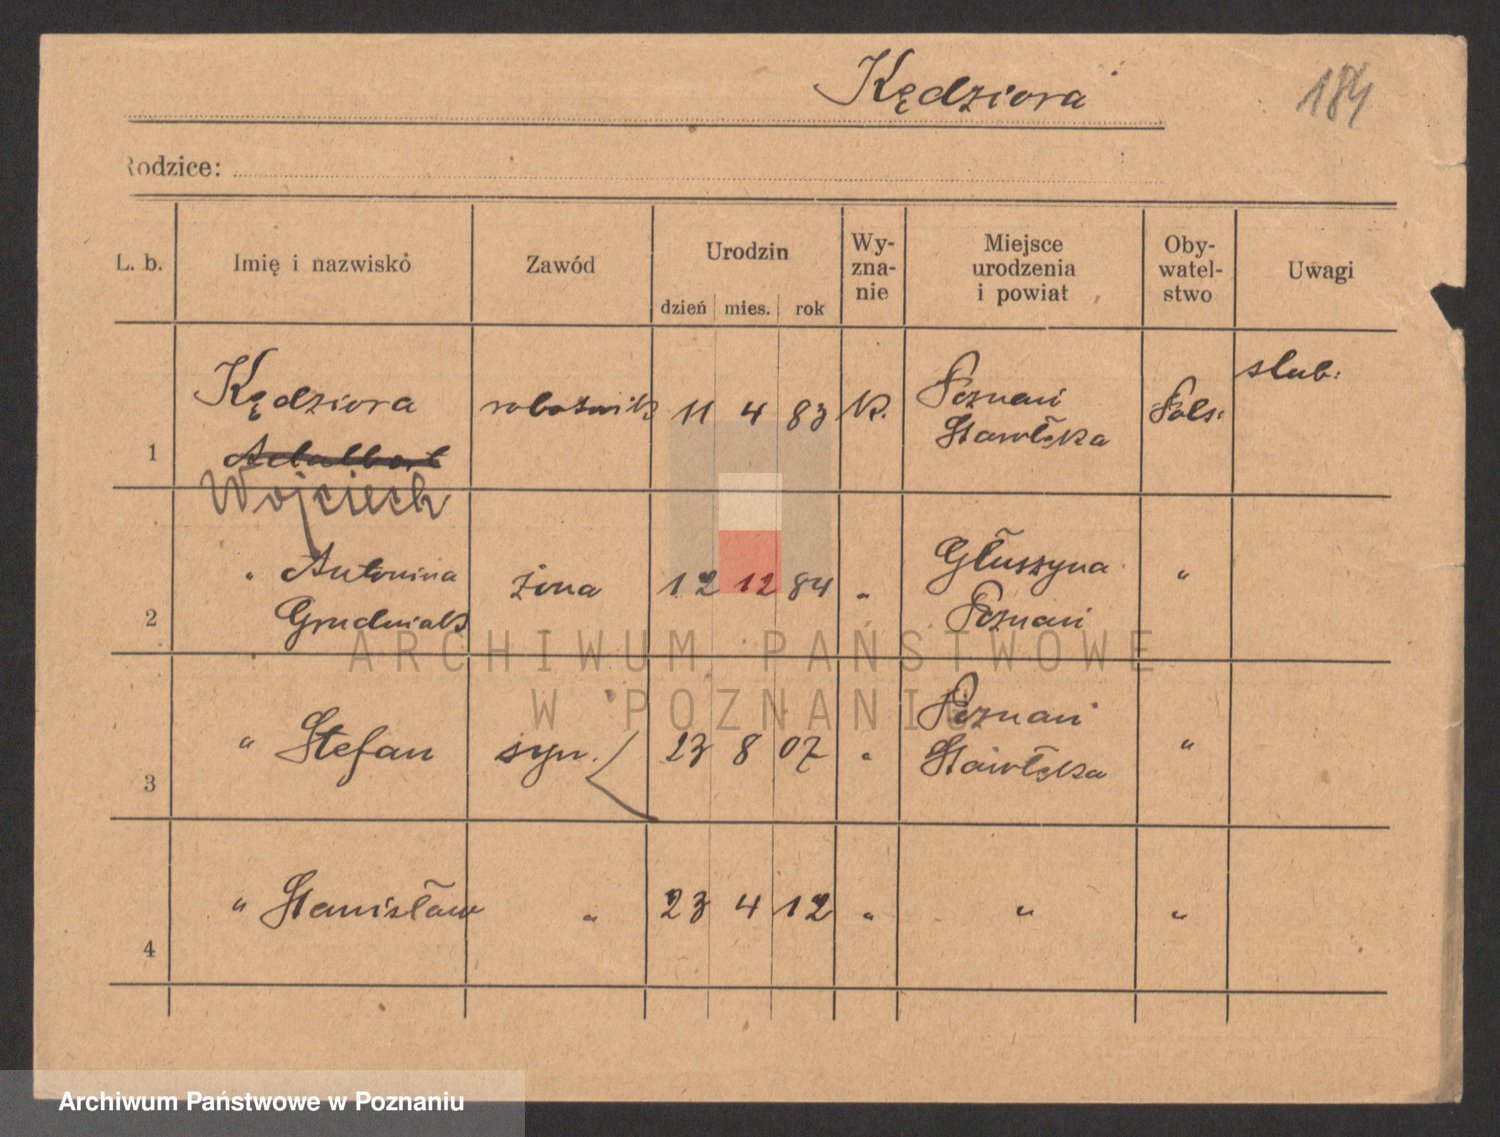 Kędziora
184
Rodzice:
L. b. Imię i nazwisko Zawód Urodzin dzień mies. rok Wy-zna-nie Miejsce urodzenia i powiat Oby-watel-stwo Uwagi
1 Kędziora robotnik 11 4 83 k. Poznań Pols. slub:
Adalbert Stawłęka
Wojciech
2 " Antonina żona 12 12 84 " Głuszyna "
Grudniak Poznań
3 " Stefan syn. 23 8 07 " Poznań "
Stawłęka
4 " Stanisław " 23 4 12 " " "
ARCHIWUM PAŃSTWOWE
W POZNANIU
Archiwum Państwowe w Poznaniu